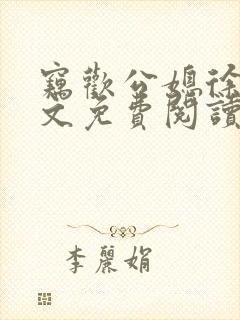 竊歡公媳徐
文免費閱讀
李麗娟